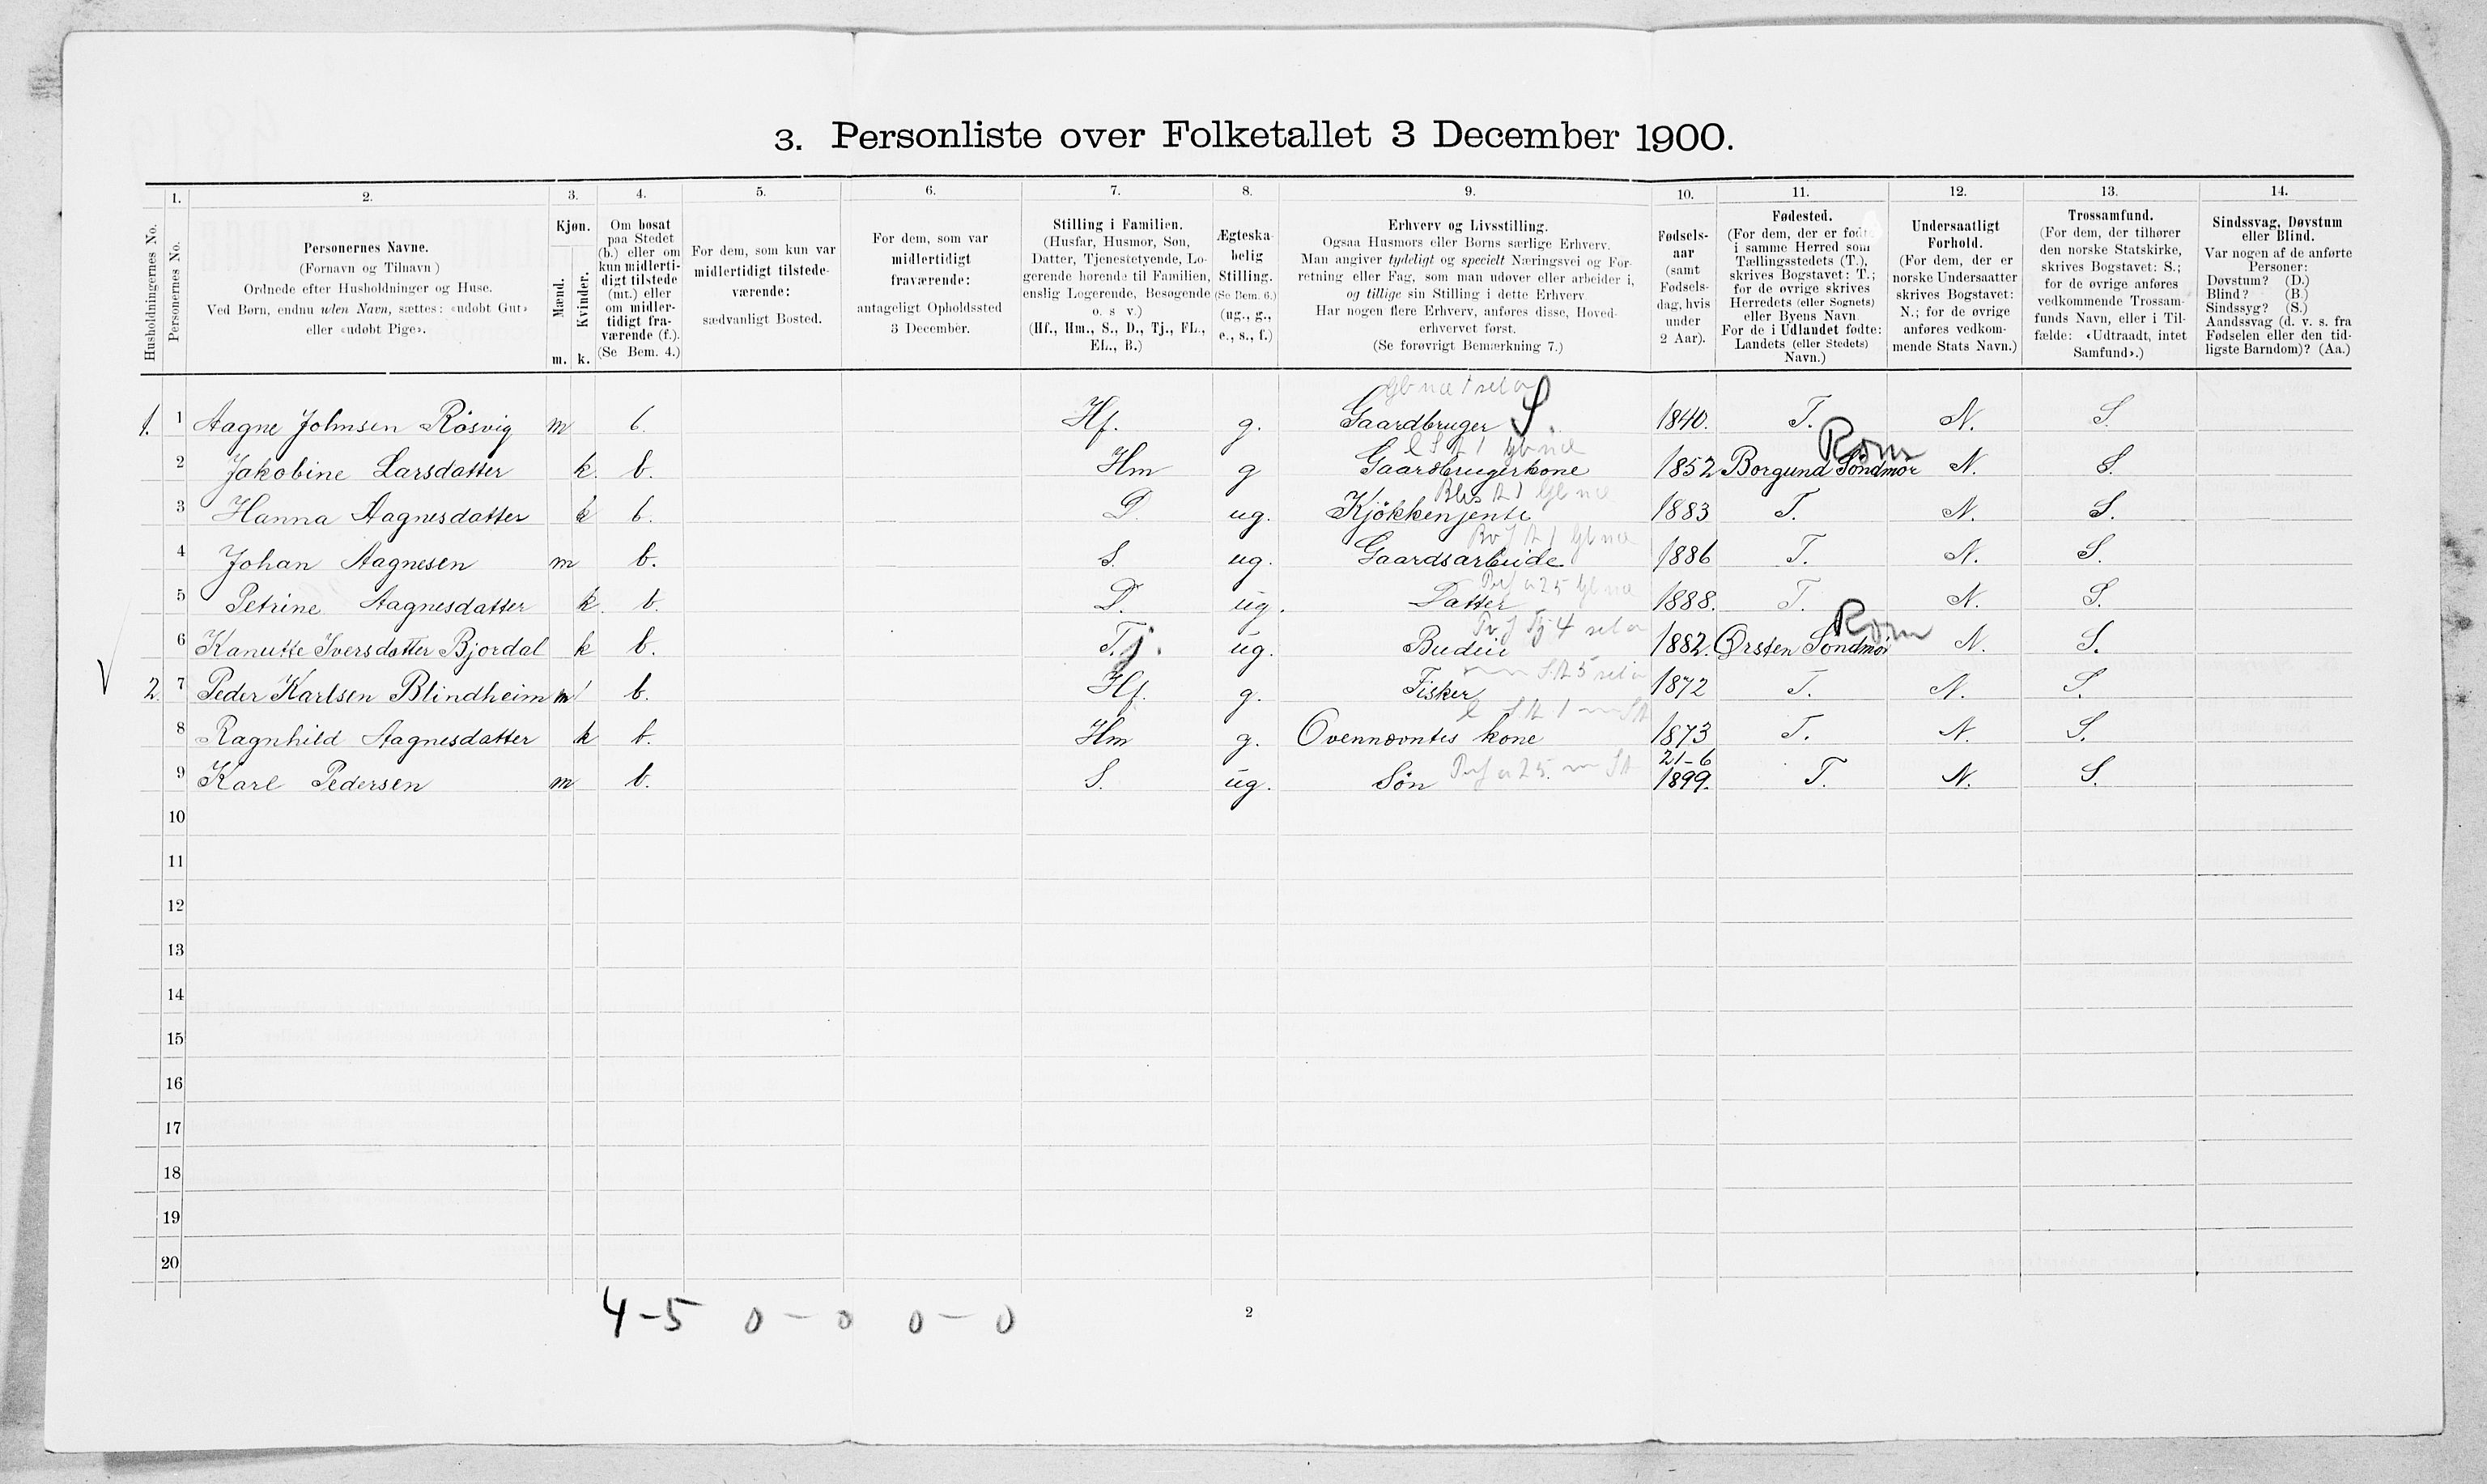 3. Personliste over Folketallet 3 December 1900.
1. 2. 3. 4. 5. 6. 7. 8. 9. 10. 11. 12. 13. 14.
Husholdningernes No.
Personernes No.
Personernes Navne.
(Fornavn og Tilnavn)
Ordnede efter Husholdninger og Huse.
Ved Børn, endnu uden Navn, sættes: «udøbt Gut»
eller «udøbt Pige».
Kjøn.
Mænd.
Kvinder.
m. k.
Om bosat
paa Stedet
(b.) eller om
kun midlerti-
digt tilstede
(mt.) eller
om midler-
tidigt fra-
værende (f.).
(Se Bem. 4.)
For dem, som kun var
midlertidigt tilstede-
værende:
sædvanligt Bosted.
For dem, som var
midlertidigt
fraværende:
antageligt Opholdssted
3 December.
Stilling i Familien.
(Husfar, Husmor, Søn,
Datter, Tjenestetyende, Lo-
gerende hørende til Familien,
enslig Logerende, Besøgende
o. s v.)
(Hf., Hm., S., D., Tj., FL.,
EL., B.)
Ægteska-
belig
Stilling.
(Se Bem. 6.)
(ug., g.,
e., s., f.)
Erhverv og Livsstilling.
Ogsaa Husmors eller Børns særlige Erhverv.
Man angiver tydeligt og specielt Næringsvei og For-
retning eller Fag, som man udøver eller arbeider i,
og tillige sin Stilling i dette Erhverv
Har nogen flere Erhverv, anføres disse, Hoved-
erhvervet først.
(Se forøvrigt Bemærkning 7.)
Fødsels-
aar
(samt
Fødsels-
dag, hvis
under
2 Aar).
Fødested.
(For dem, der er fødte
i samme Herred som
Tællingsstedets (T.),
skrives Bogstavet: T.;
for de øvrige skrives
Herredets (eller Sognets)
eller Byens Navn
For de i Udlandet fødte:
Landets (eller Stedets)
Navn.)
Undersaatligt
Forhold.
(For dem, der er
norske Undersaatter
skrives Bogstavet:
N.; for de øvrige
anføres vedkom-
mende Stats Navn.)
Trossamfund.
(For dem, der tilhører
den norske Statskirke,
skrives Bogstavet: S.;
for de øvrige anføres
vedkommende Trossam-
funds Navn, eller i Til-
fælde: «Udtraadt, intet
Samfund».)
Sindssvag, Døvstum
eller Blind.
Var nogen af de anførte
Personer:
Døvstum? (D.)
Blind? (B.)
Sindssyg? (S.)
Aandssvag (d. v. s. fra
Fødselen eller den tid-
ligste Barndom)? (Aa.)
1. 1 Aagne Johnsen Rösvig m b. Hf. g. Gaardbruger S. 1840. T. N. S.
Rom
2 Jakobine Larsdatter k. b. Hm g Gaardbrugerkone 1852 Borgund Söndmör N. S.
3 Hanna Aagnesdatter k b. D. ug. Kjökkenjente 1883 T. N. S.
4 Johan Aagnesen m b. S. ug. Gaardsarbeide 1886 T. N. S.
5 Petrine Aagnesdatter k. b. D. ug. Datter 1888. T. N. S.
Rom
6 Kanutte Iversdatter Bjordal k b. Tj. ug. Budeie 1882. Ørsten Söndmör N. S.
2. 7 Peder Karlsen Blindheim m b. Hf. g. Fisker 1872 T. N. S.
8 Ragnhild Aagnesdatter k b. Hm g. Ovennævntes kone 1873 T. N. S.
21-6
9 Karl Pedersen m b. S. ug. Søn 1899. T. N. S.
10
11
12
13
14
15
16
17
18
19
20
4-5 0-0 0-0
2